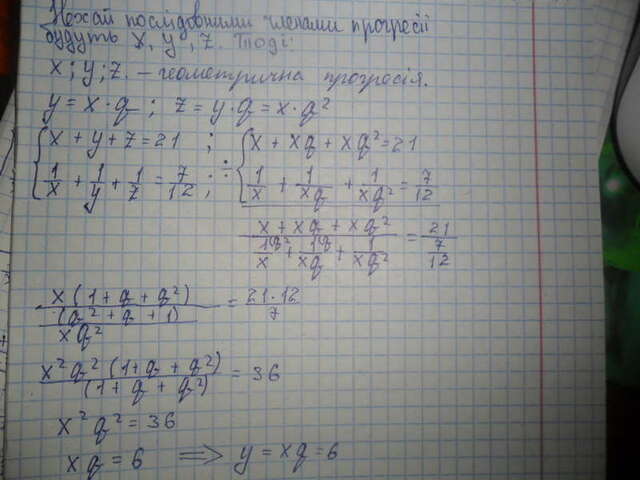 Нехай послідовними членами прогресії
будуть x, y, z. Тоді:
x; y; z. – геометрична прогресія.
y = x · q ; z = y · q = x · q²
{ x + y + z = 21 ; { x + xq + xq² = 21
{ 1/x + 1/y + 1/z = 7/12 ; ÷ { 1/x + 1/xq + 1/xq² = 7/12
(x + xq + xq²) / (1q²/x + 1q/xq + 1/xq²) = 21 / (7/12)
x(1 + q + q²) / ((q² + q + 1) / xq²) = 21 · 12 / 7
x²q²(1 + q + q²) / (1 + q + q²) = 36
x²q² = 36
xq = 6 ⟹ y = xq = 6